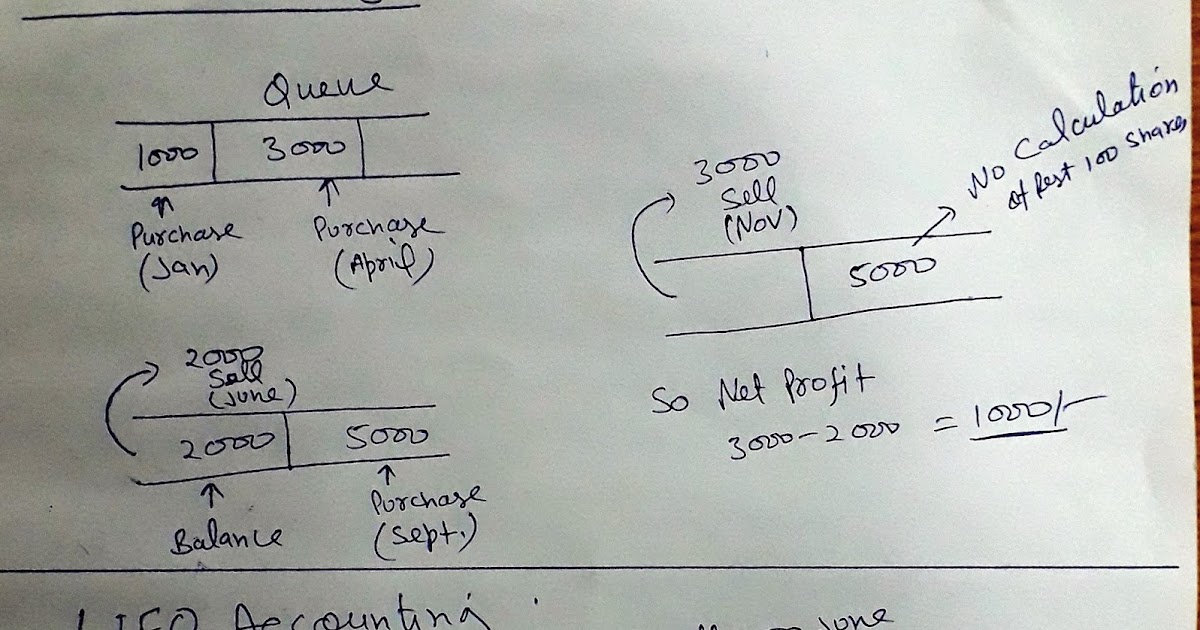 Queue
1000 3000
Purchase
(Jan)
Purchase
(April)
2000
Sell
(June)
2000 5000
Balance
Purchase
(Sept.)
3000
Sell
(Nov)
5000
No Calculation
of Rest 100 Shares
So Net Profit
3000-2000 = 1000/-
LIFO Accounting
June